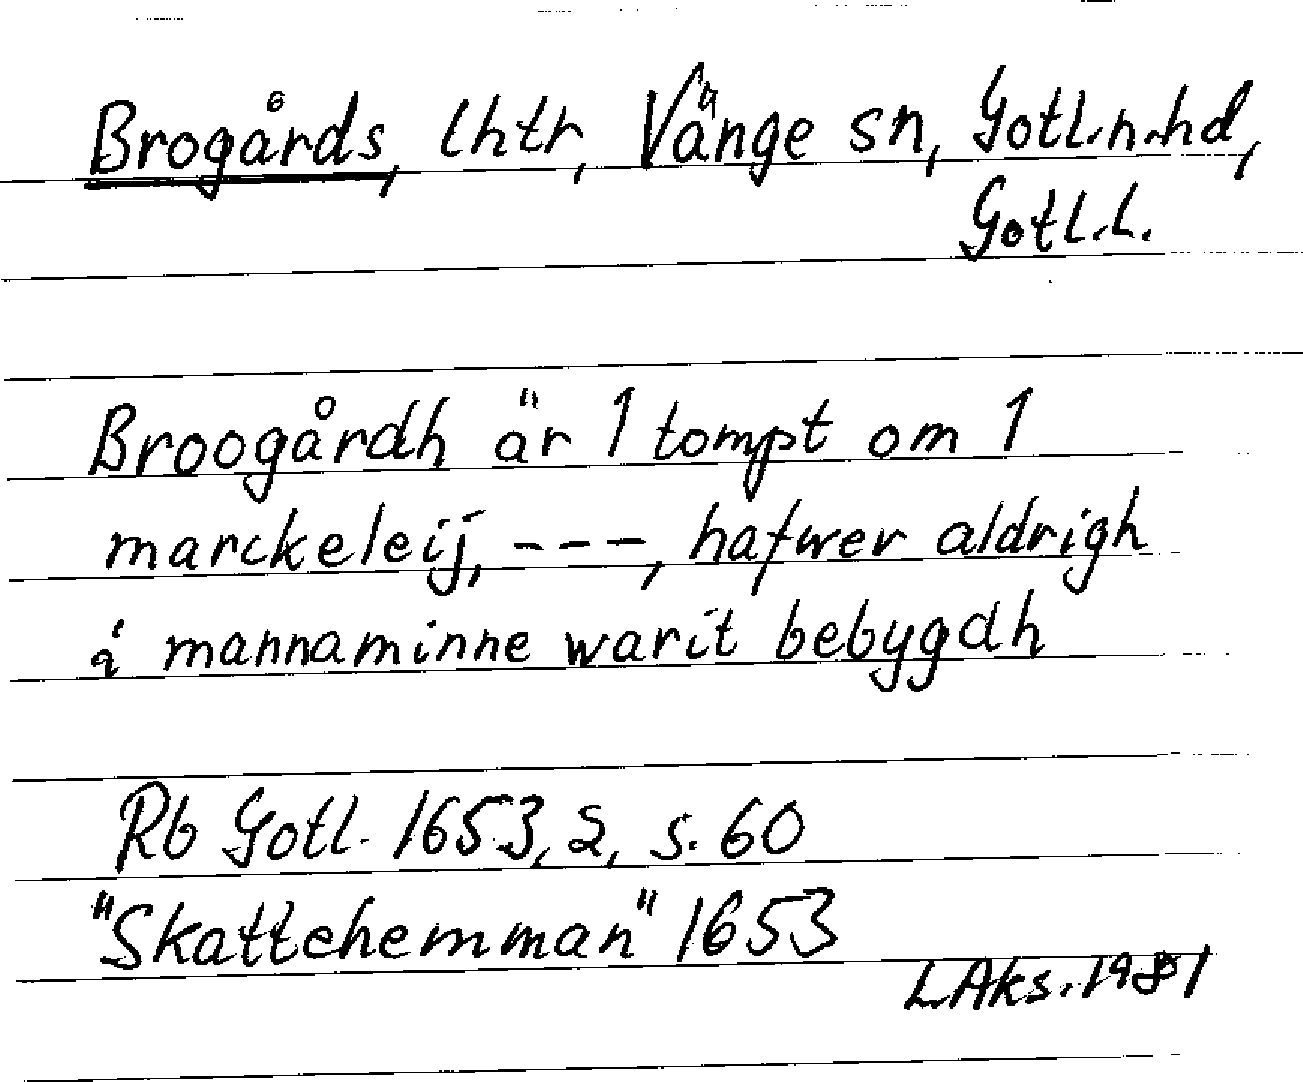 Brogårds, lhtr, Vänge sn, Gotl.n.hd,
Gotl.l.
Broogårdh är 1 tompt om 1
marckeleij, ---, hafwer aldrigh
i mannaminne warit bebygdh
Rb Gotl. 1653, 2, s. 60
"Skattehemman" 1653
L.Aks. 1981